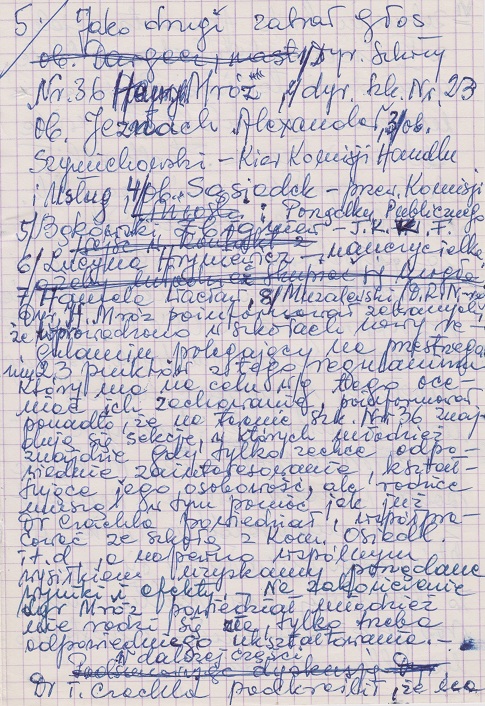 5. Jako drugi zabrał głos
dyr. Szkoły
Nr. 36 Mróz, 2/ dyr. szk. Nr. 23
ob. Alexander, 3/ ob.
Szymichowski - Kier Komisji Handlu
i Usług, 4/ ob. Sąsiadek - przew. Komisji
i Porządku Publicznego
5/ Zbigniew
6/ Lucyna Hryniewicz - nauczycielka
7/ Wacław, 8/
Dyr. H. Mróz poinformował zebranych
że wprowadzono w szkołach nowy re-
gulamin polegający na przestrzega-
niu 23 punktów z tego regulaminu
który ma na celu wg tego oce-
niać ich zachowanie, poinformował
ponadto, że na terenie szk. Nr. 36 znaj-
dują się sekcje, w których młodzież
znajdzie gdy tylko zechce odpo-
wiednie zainteresowania, kształ-
tujące jego osobowość, ale rodzice
muszą w tym pomóc jak już
Dr Czachla powiedział, współpra-
cować ze szkołą z Kom. Osiedl.
i t. d., a na pewno wspólnym
wysiłkiem uzyskamy pożądane
wyniki i efekty. - Na zakończenie
dyr Mróz powiedział młodzież
nie rodzi się zła tylko trzeba
odpowiedniego ukształtowania. -
W dalszej części
Dr T. Czachla podkreślił, że